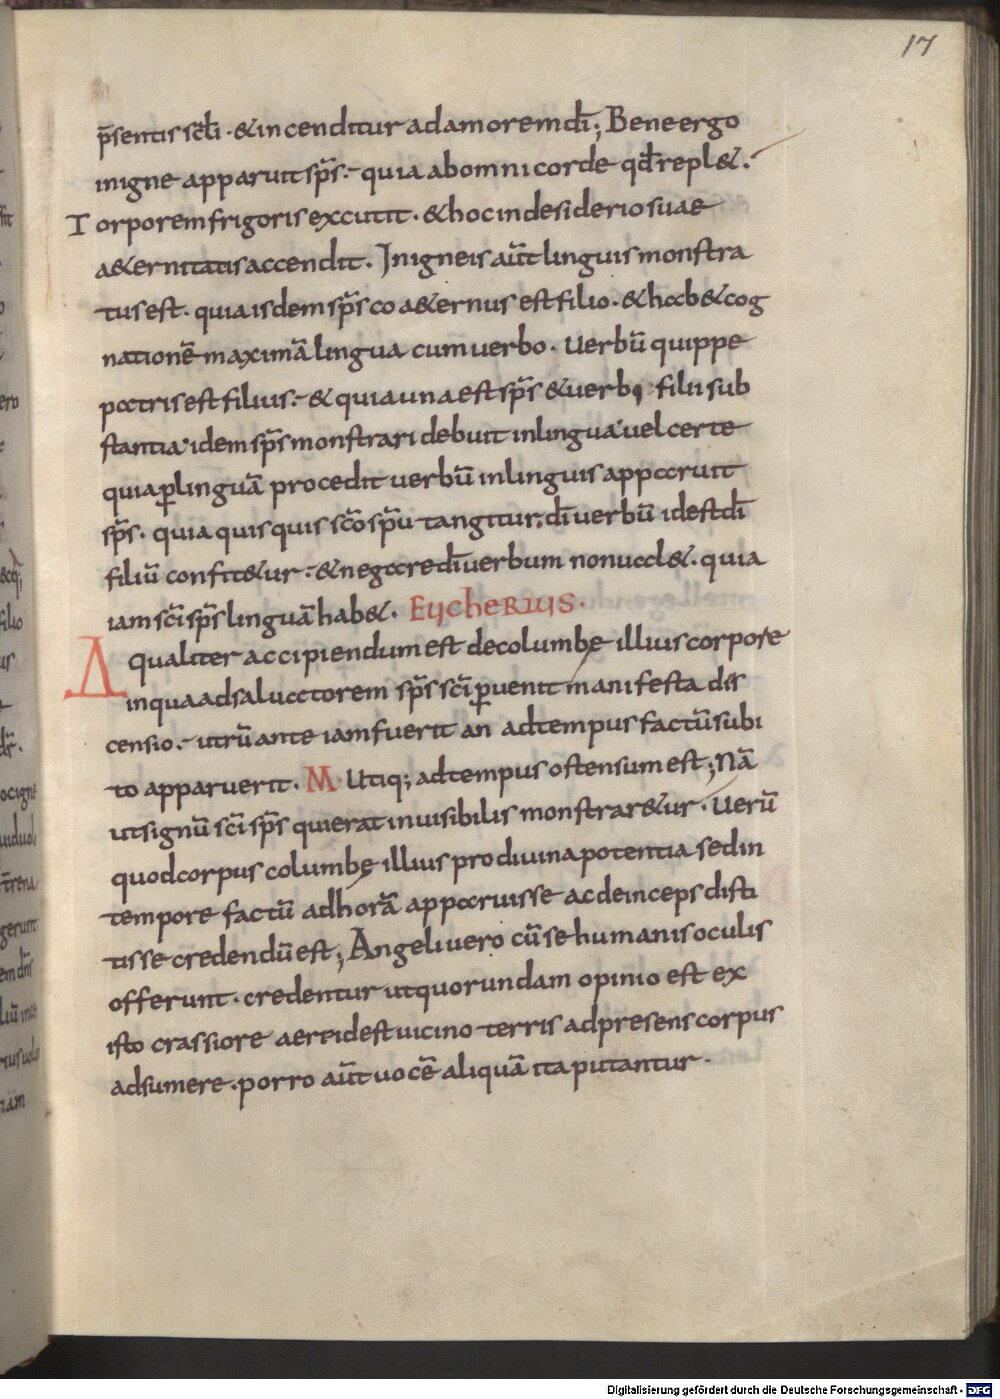 17
p̄sentis scl̄i · & incenditur ad amorem dī; Bene ergo
in igne apparuit sp̄s · quia ab omni corde qđ repl&·
Torporem frigoris excutit · & hoc in desiderio suae
a&ernitatis accendit · In igneis aūt linguis monstra
tus est · quia isdem sp̄s coa&ernus est filio · & hab& cog
nationē maximā lingua cum uerbo · Uerbū quippe
patris est filius · & quia una est sp̄s & uerbi filii sub
stantia idem sp̄s monstrari debuit in lingua uel certe
quia ꝑ linguā procedit uerbū in linguis apparuit
sp̄s · quia quisquis sc̄o sp̄u tangitur, dī uerbū id est dī
filiū confit&ur · & negare dī uerbum non ual& · quia
iam sc̄i sp̄s linguā hab& · Eycherius ·
Δ qualiter accipiendum est de columbę illius corpore
in qua ad saluatorem sp̄s sc̄i ꝑuenit manifesta dis
censio · utrū ante iam fuerit an ad tempus factū subi
to apparuerit · M · Utiq; ad tempus ostensum est; Nā
ut signū sc̄i sp̄s qui erat inuisibilis monstrar&ur · Uerū
quod corpus columbę illius pro diuina potentia sed in
tempore factū ad horā apparuisse ac deinceps disti
tisse credendū est; Angeli uero cū se humanis oculis
offerunt · credentur ut quorundam opinio est ex
isto crassiore aere id est uicino terris ad presens corpus
adsumere · porro aūt uocē aliquā ita putantur ·
Digitalisierung gefördert durch die Deutsche Forschungsgemeinschaft - DFG